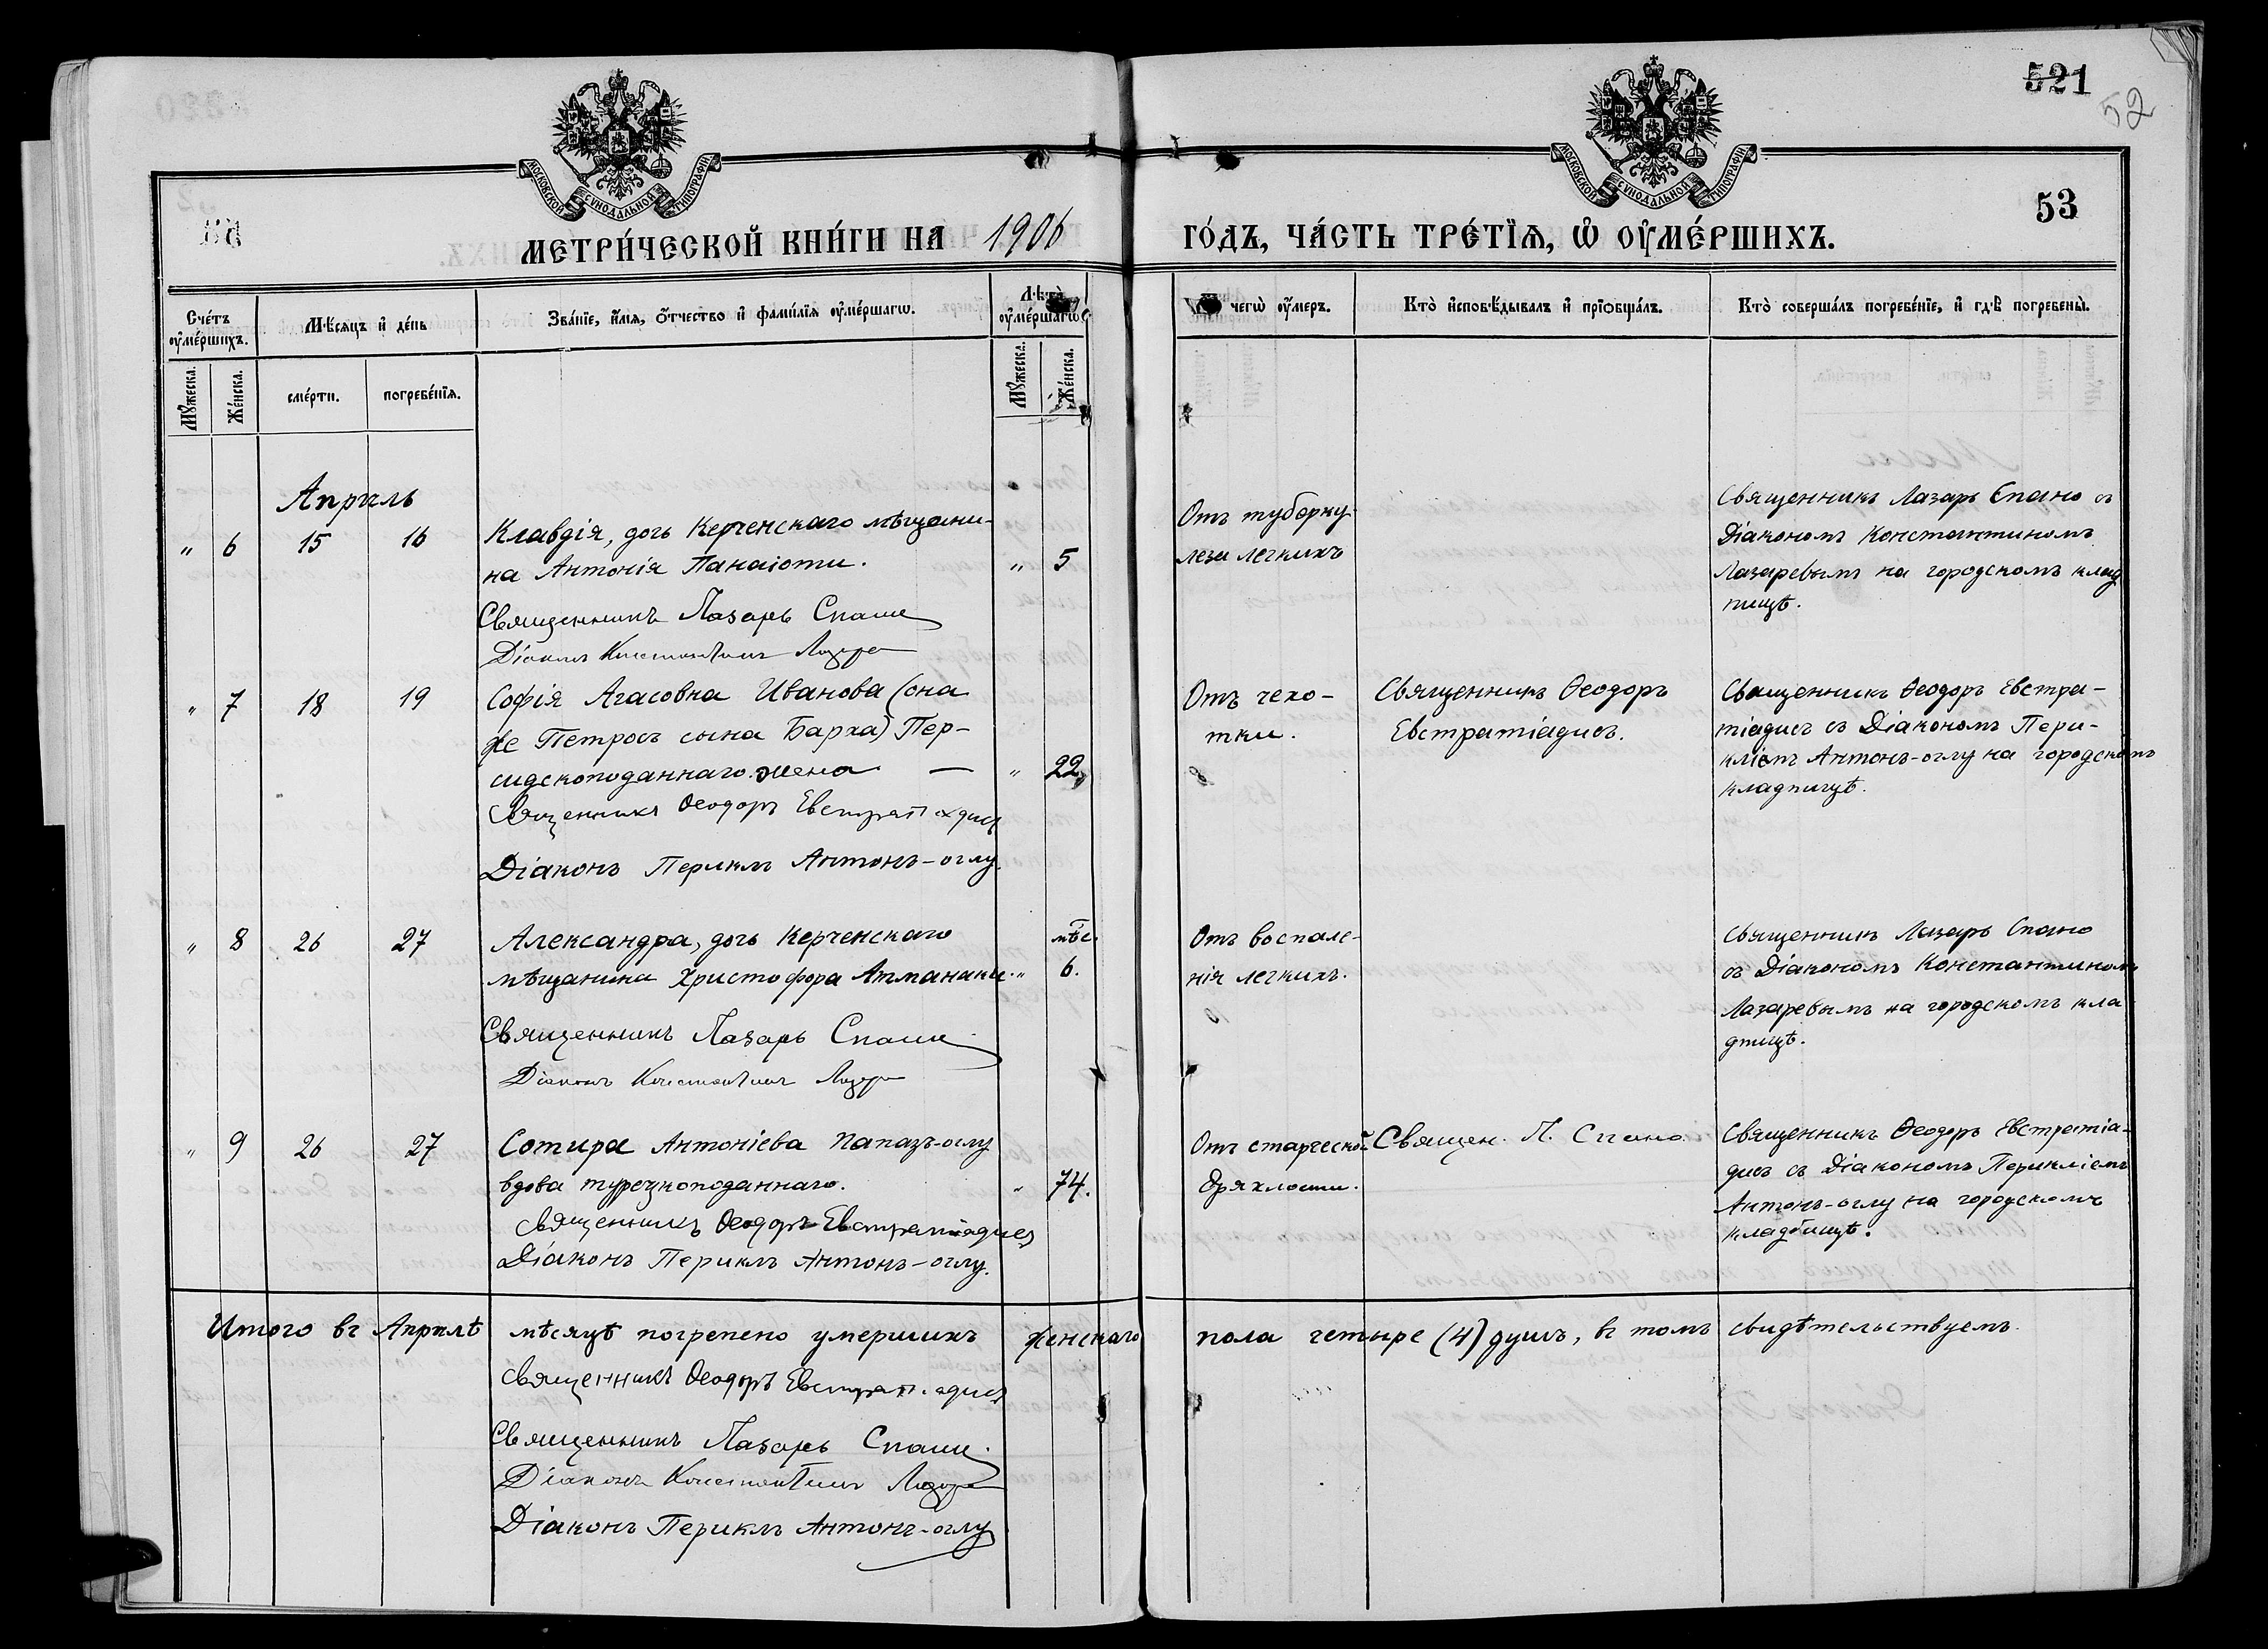 521
52
53
МОСКОВСКОЙ СѴНОДАЛЬНОЙ ТИПОГРАФІИ
МОСКОВСКОЙ СѴНОДАЛЬНОЙ ТИПОГРАФІИ
МЕТРИ́ЧЕСКОЙ КНИ́ГИ НА 1906 ГО́ДЪ, ЧА́СТЬ ТРЕ́ТЇѦ, Ѡ҆ ОУ҆МЕ́РШИХЪ.
Сче́тъ оу҆ме́ршихъ.
Мѣ́сяцъ и҆ де́нь
Зва́нїе, и҆́мѧ, ѻ҆́тчество и҆ фами́лїѧ оу҆ме́ршагѡ.
Лѣ́та оу҆ме́ршагѡ
чегѡ̀ оу҆́меръ.
Кто̀ и҆сповѣ́дывалъ и҆ прїѻбща́лъ.
Кто̀ соверша́лъ погребе́нїе, и҆ гдѣ̀ погребены̀.
Мꙋ́жеска.
Же́нска.
сме́рти.
погребе́нїѧ.
Мꙋ́жеска.
Же́нска.
Апрѣль
" 6 15 16
Клавдія, дочь Керченскаго мѣщани-
на Антонія Панаіоти. " 5
Священникъ Лазарь Спано
Діаконъ Константинъ Лазаре
Отъ туберку-
леза легкихъ
Священникъ Лазарь Спано съ
Діакономъ Константиномъ
Лазаревымъ на городскомъ клад
пищѣ.
" 7 18 19
Софія Агасовна Иванова (она
же Петросъ сына Барха) Пер-
сидскоподаннаго жена — " 22
Священникъ Ѳеодоръ Евстратіадисъ
Діаконъ Периклъ Антонъ-оглу.
Отъ чехо-
тки.
Священникъ Ѳеодоръ
Евстратіадисъ.
Священникъ Ѳеодоръ Евстра-
тіадисъ съ Діакономъ Пери-
кліемъ Антонъ-оглу на городскомъ
кладпищѣ.
" 8 26 27
Александра, дочь Керченскаго мѣс.
мѣщанина Христофора Атманаки. " 6.
Священникъ Лазарь Спано
Діаконъ Константинъ Лазаре
Отъ воспале-
нія легкихъ.
Священникъ Лазарь Спано
съ Діакономъ Константиномъ
Лазаревымъ на городскомъ кла
дпищѣ.
" 9 26 27
Сотира Антоніева Папазъ-оглу
вдова турецкоподаннаго. " 74.
Священникъ Ѳеодоръ Евстратіадисъ
Діаконъ Периклъ Антонъ-оглу.
Отъ старческой
дряхлости.
Священ. Л. Спано
Священникъ Ѳеодоръ Евстратіа-
дисъ съ Діакономъ Перикліемъ
Антонъ-оглу на городскомъ
кладбищѣ.
Итого въ Апрѣлѣ мѣсяцѣ погрепено умершихъ женскаго пола четыре (4) душъ, въ томъ свидѣтельствуемъ.
Священникъ Ѳеодоръ Евстратіадисъ
Священникъ Лазарь Спано
Діаконъ Константинъ Лазаре
Діаконъ Периклъ Антонъ-оглу